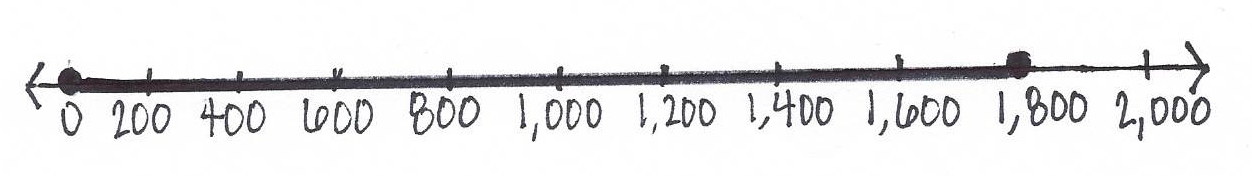 0 200 400 600 800 1,000 1,200 1,400 1,600 1,800 2,000